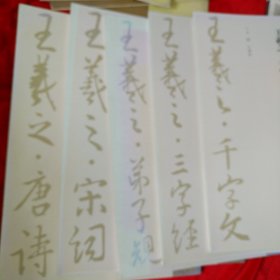 王羲之·唐诗
王羲之·宋词
王羲之·弟子规
王羲之·三字经
王羲之·千字文